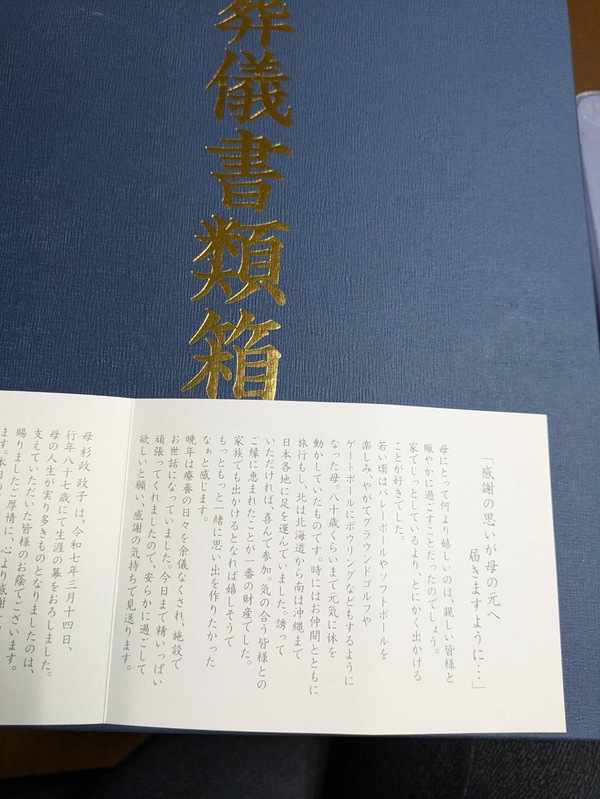 葬儀書類箱
「感謝の思いが母の元へ
届きますように…」
母にとって何より嬉しいのは、親しい皆様と
賑やかに過ごすことだったのでしょう。
家でじっとしているより、とにかく出かける
ことが好きでした。
若い頃はバレーボールやソフトボールを
楽しみ、やがてグラウンドゴルフや
ゲートボールにボウリングなどもするように
なった母。八十歳くらいまで元気に体を
動かしていたものです。時にはお仲間とともに
旅行もし、北は北海道から南は沖縄まで
日本各地に足を運んでいました。誘って
いただければ、喜んで参加。気の合う皆様との
ご縁に恵まれたことが一番の財産でした。
家族でも出かけるとなれば嬉しそうで
もっともっと一緒に思い出を作りたかった
なぁと感じます。
晩年は療養の日々を余儀なくされ、施設で
お世話になっていました。今日まで精いっぱい
頑張ってくれましたので、安らかに過ごして
欲しいと願い、感謝の気持ちで見送ります。
母 杉政 政子は、令和七年三月十四日、
行年八十七歳にて生涯の幕をおろしました。
母の人生が実り多きものとなりましたのは、
支えていただいた皆様のお蔭でございます。
賜りましたご厚情に、心より感謝
ます。本日